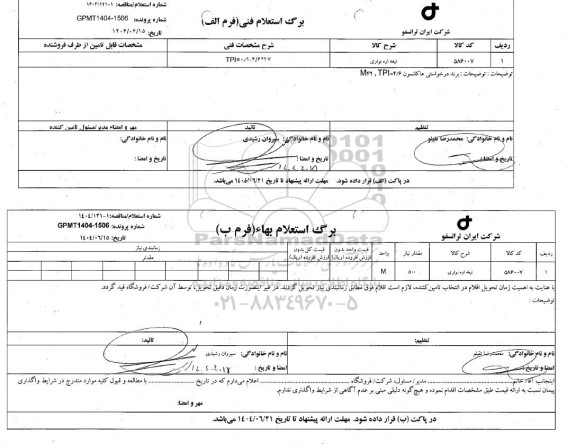 شماره استعلام/مناقصه: ۱۴۰۴/۱۲۱-۱
برگ استعلام فنی(فرم الف)
شماره پرونده: GPMT1404-1506
شرکت ایران ترانسفو
ردیف کد کالا شرح کالا شرح مشخصات فنی مشخصات فابل تامین از طرف فروشنده
۱ ۵۸۶۰۰۷ تیغه اره نواری
توضیحات : توضیحات : برند درخواستی هاکانسون M۴۲ , TPI=۴/۶
تنظیم تائید مهر و امضاء مدیر/مسئول تامین کننده
نام و نام خانوادگی: محمدرضا نقیلو نام و نام خانوادگی: سیروان رشیدی نام و نام خانوادگی:
تاریخ و امضا: تاریخ و امضا : تاریخ و امضا :
در پاکت (الف) قرار داده شود. مهلت ارائه پیشنهاد تا تاریخ ۱۴۰۴/۰۶/۲۱ می‌باشد.
شماره استعلام/مناقصه: ۱۴۰۴/۱۲۱-۱
برگ استعلام بهاء(فرم ب)
شماره پرونده: GPMT1404-1506
شرکت ایران ترانسفو
تاریخ: ۱۴۰۴/۰۶/۱۵
ردیف کد کالا شرح کالا مقدار نیاز واحد قیمت واحد بدون ارزش افزوده (ریال) قیمت کل بدون ارزش افزوده (ریال) زمانبندی نیاز
مقدار
۱ ۵۸۶۰۰۷ تیغه اره نواری ۵۰۰ M
با عنایت به اهمیت زمان تحویل اقلام در انتخاب تامین کننده، لازم است اقلام فوق مطابق زمانبندی نیاز تحویل گردند. در غیر اینصورت زمان دقیق تحویل، توسط آن شرکت/ فروشگاه قید گردد.
توضیحات :
ParsNamadData
۰۲۱-۸۸۳۴۹۶۷۰-۵
تنظیم: تائید:
نام و نام خانوادگی: محمدرضا نقیلو نام و نام خانوادگی: سیروان رشیدی
تاریخ و امضا : تاریخ و امضا :
اینجانب آقا/ خانم مدیر/ مسئول، شرکت/ فروشگاه اعلام می‌دارم که در تاریخ با مطالعه و قبول کلیه موارد مندرج در شرایط واگذاری
پیمان نسبت به ارائه قیمت طبق مشخصات اقدام نموده و هیچ گونه دلیلی مبنی بر عدم آگاهی از شرایط واگذاری ندارم.
مهر و امضا:
در پاکت (ب) قرار داده شود. مهلت ارائه پیشنهاد تا تاریخ ۱۴۰۴/۰۶/۲۱ می‌باشد.